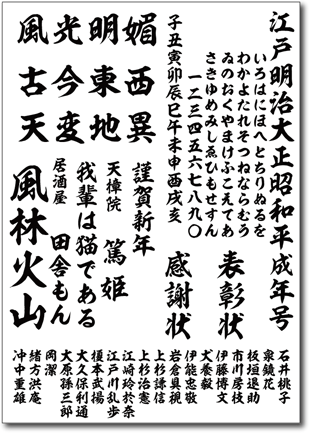 江戸明治大正昭和平成年号
いろはにほへとちりぬるを
わかよたれそつねならむう
ゐのおくやまけふこえてあ
さきゆめみしゑひもせすん
一二三四五六七八九〇
子丑寅卯辰巳午未申酉戌亥
表彰状
感謝状
媚西異
明東地
光今変
風古天
謹賀新年
天樟院 篤姫
我輩は猫である
居酒屋 田舎もん
風林火山
石井桃子
泉鏡花
板垣退助
市川房枝
伊藤博文
犬養毅
伊能忠敬
岩倉具視
上杉謙信
上杉治憲
江崎玲於奈
江戸川乱歩
榎本武揚
大久保利通
大原孫三郎
岡潔
緒方洪庵
冲中重雄